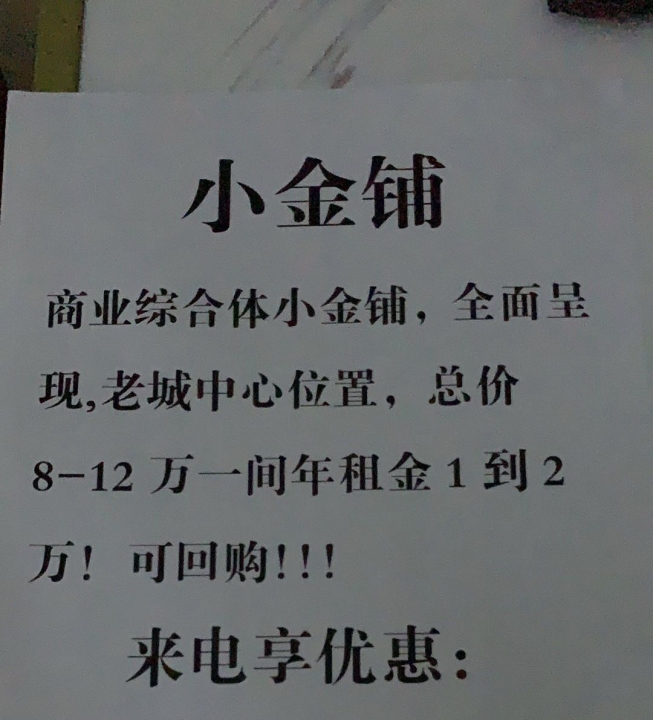 小金铺
商业综合体小金铺，全面呈
现,老城中心位置，总价
8-12 万一间年租金 1 到 2
万！可回购!!!
来电享优惠：